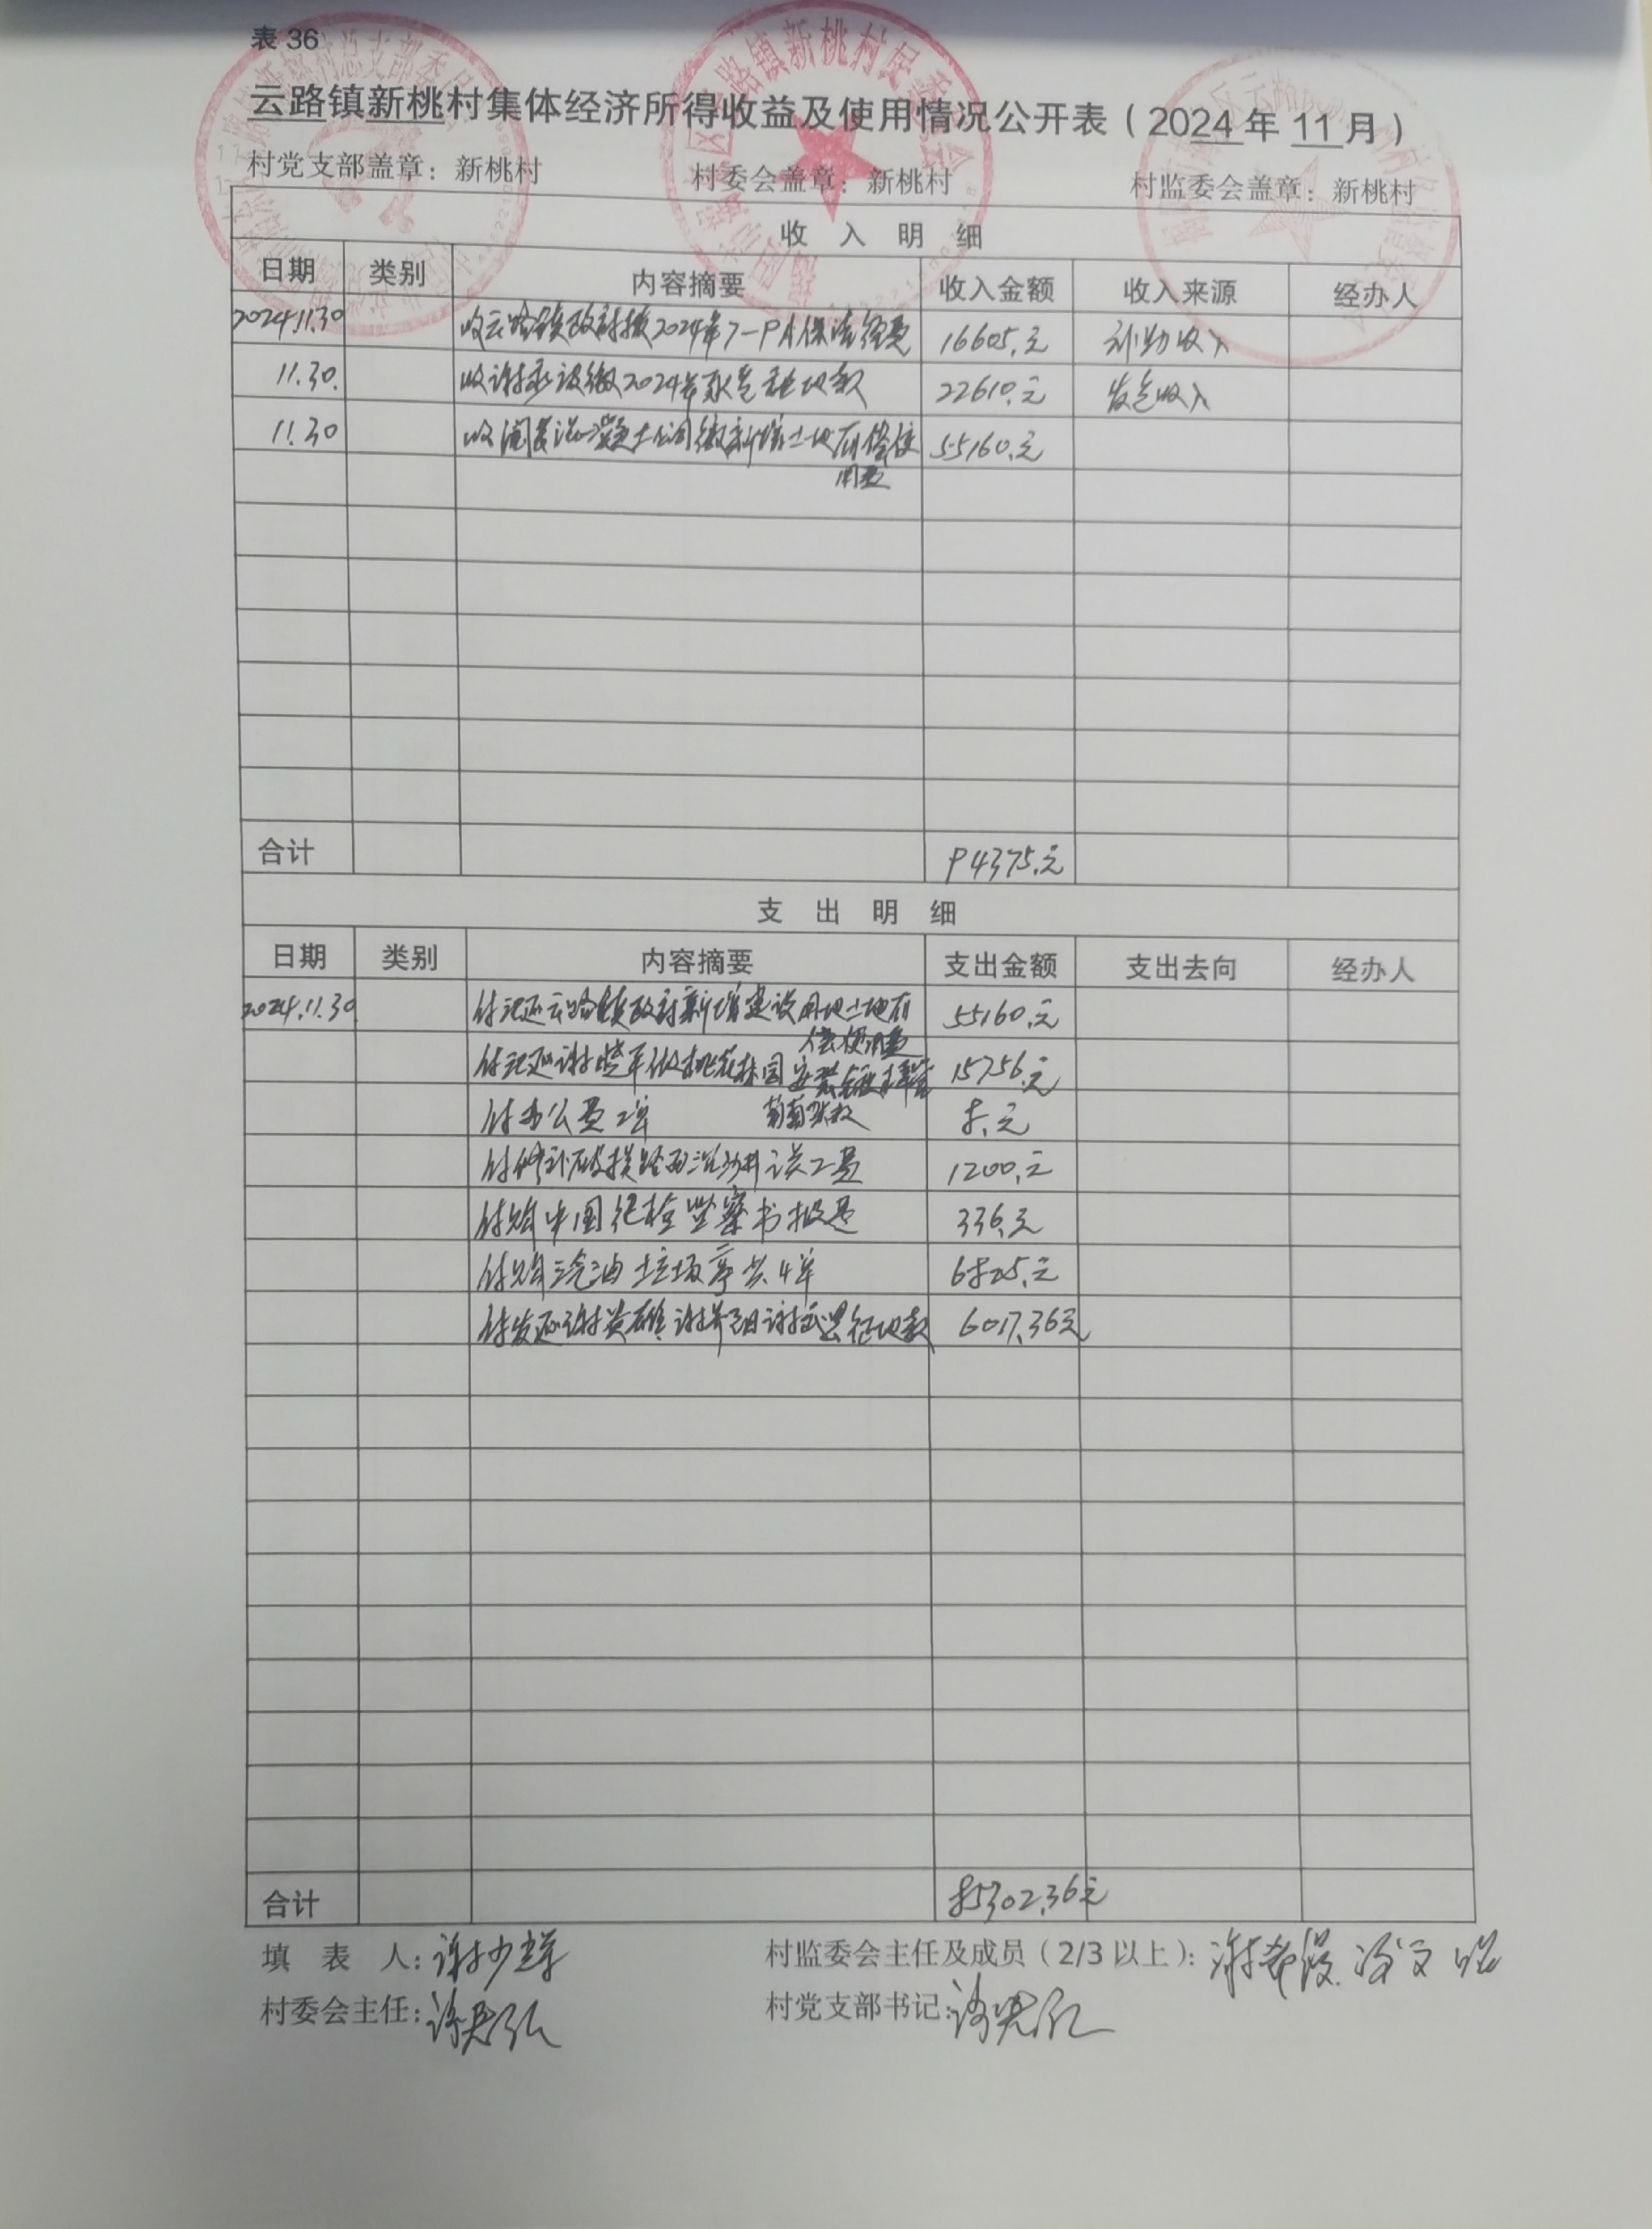 表 36
云路镇新桃村集体经济所得收益及使用情况公开表（2024 年 11 月）
村党支部盖章：新桃村 村委会盖章：新桃村 村监委会盖章：新桃村
收 入 明 细
日期 类别 内容摘要 收入金额 收入来源 经办人
2024.11.30 收云路镇政府拨2024年7-9月保洁经费 16605.元 补助收入
11.30. 收谢 缴2024年 款 22610.元 发包收入
11.30 收 混凝土公司缴新增土地有偿使 55160.元
用费
合计 94375.元
支 出 明 细
日期 类别 内容摘要 支出金额 支出去向 经办人
2024.11.30 付 云路镇政府新增建设用地土地有 55160.元
偿使用费
付 谢 桃花林园安装 15756.元
葡萄架
付办公费2单 8.元
付修补破损路面 误工费 1200.元
付购中国纪检监察书报费 336.元
付购汽油垃圾 共4单 6825.元
付发还谢 谢 谢 征地款 6017.36元
合计 85302.36元
填 表 人：谢少 村监委会主任及成员（2/3 以上）：谢
村委会主任： 村党支部书记：